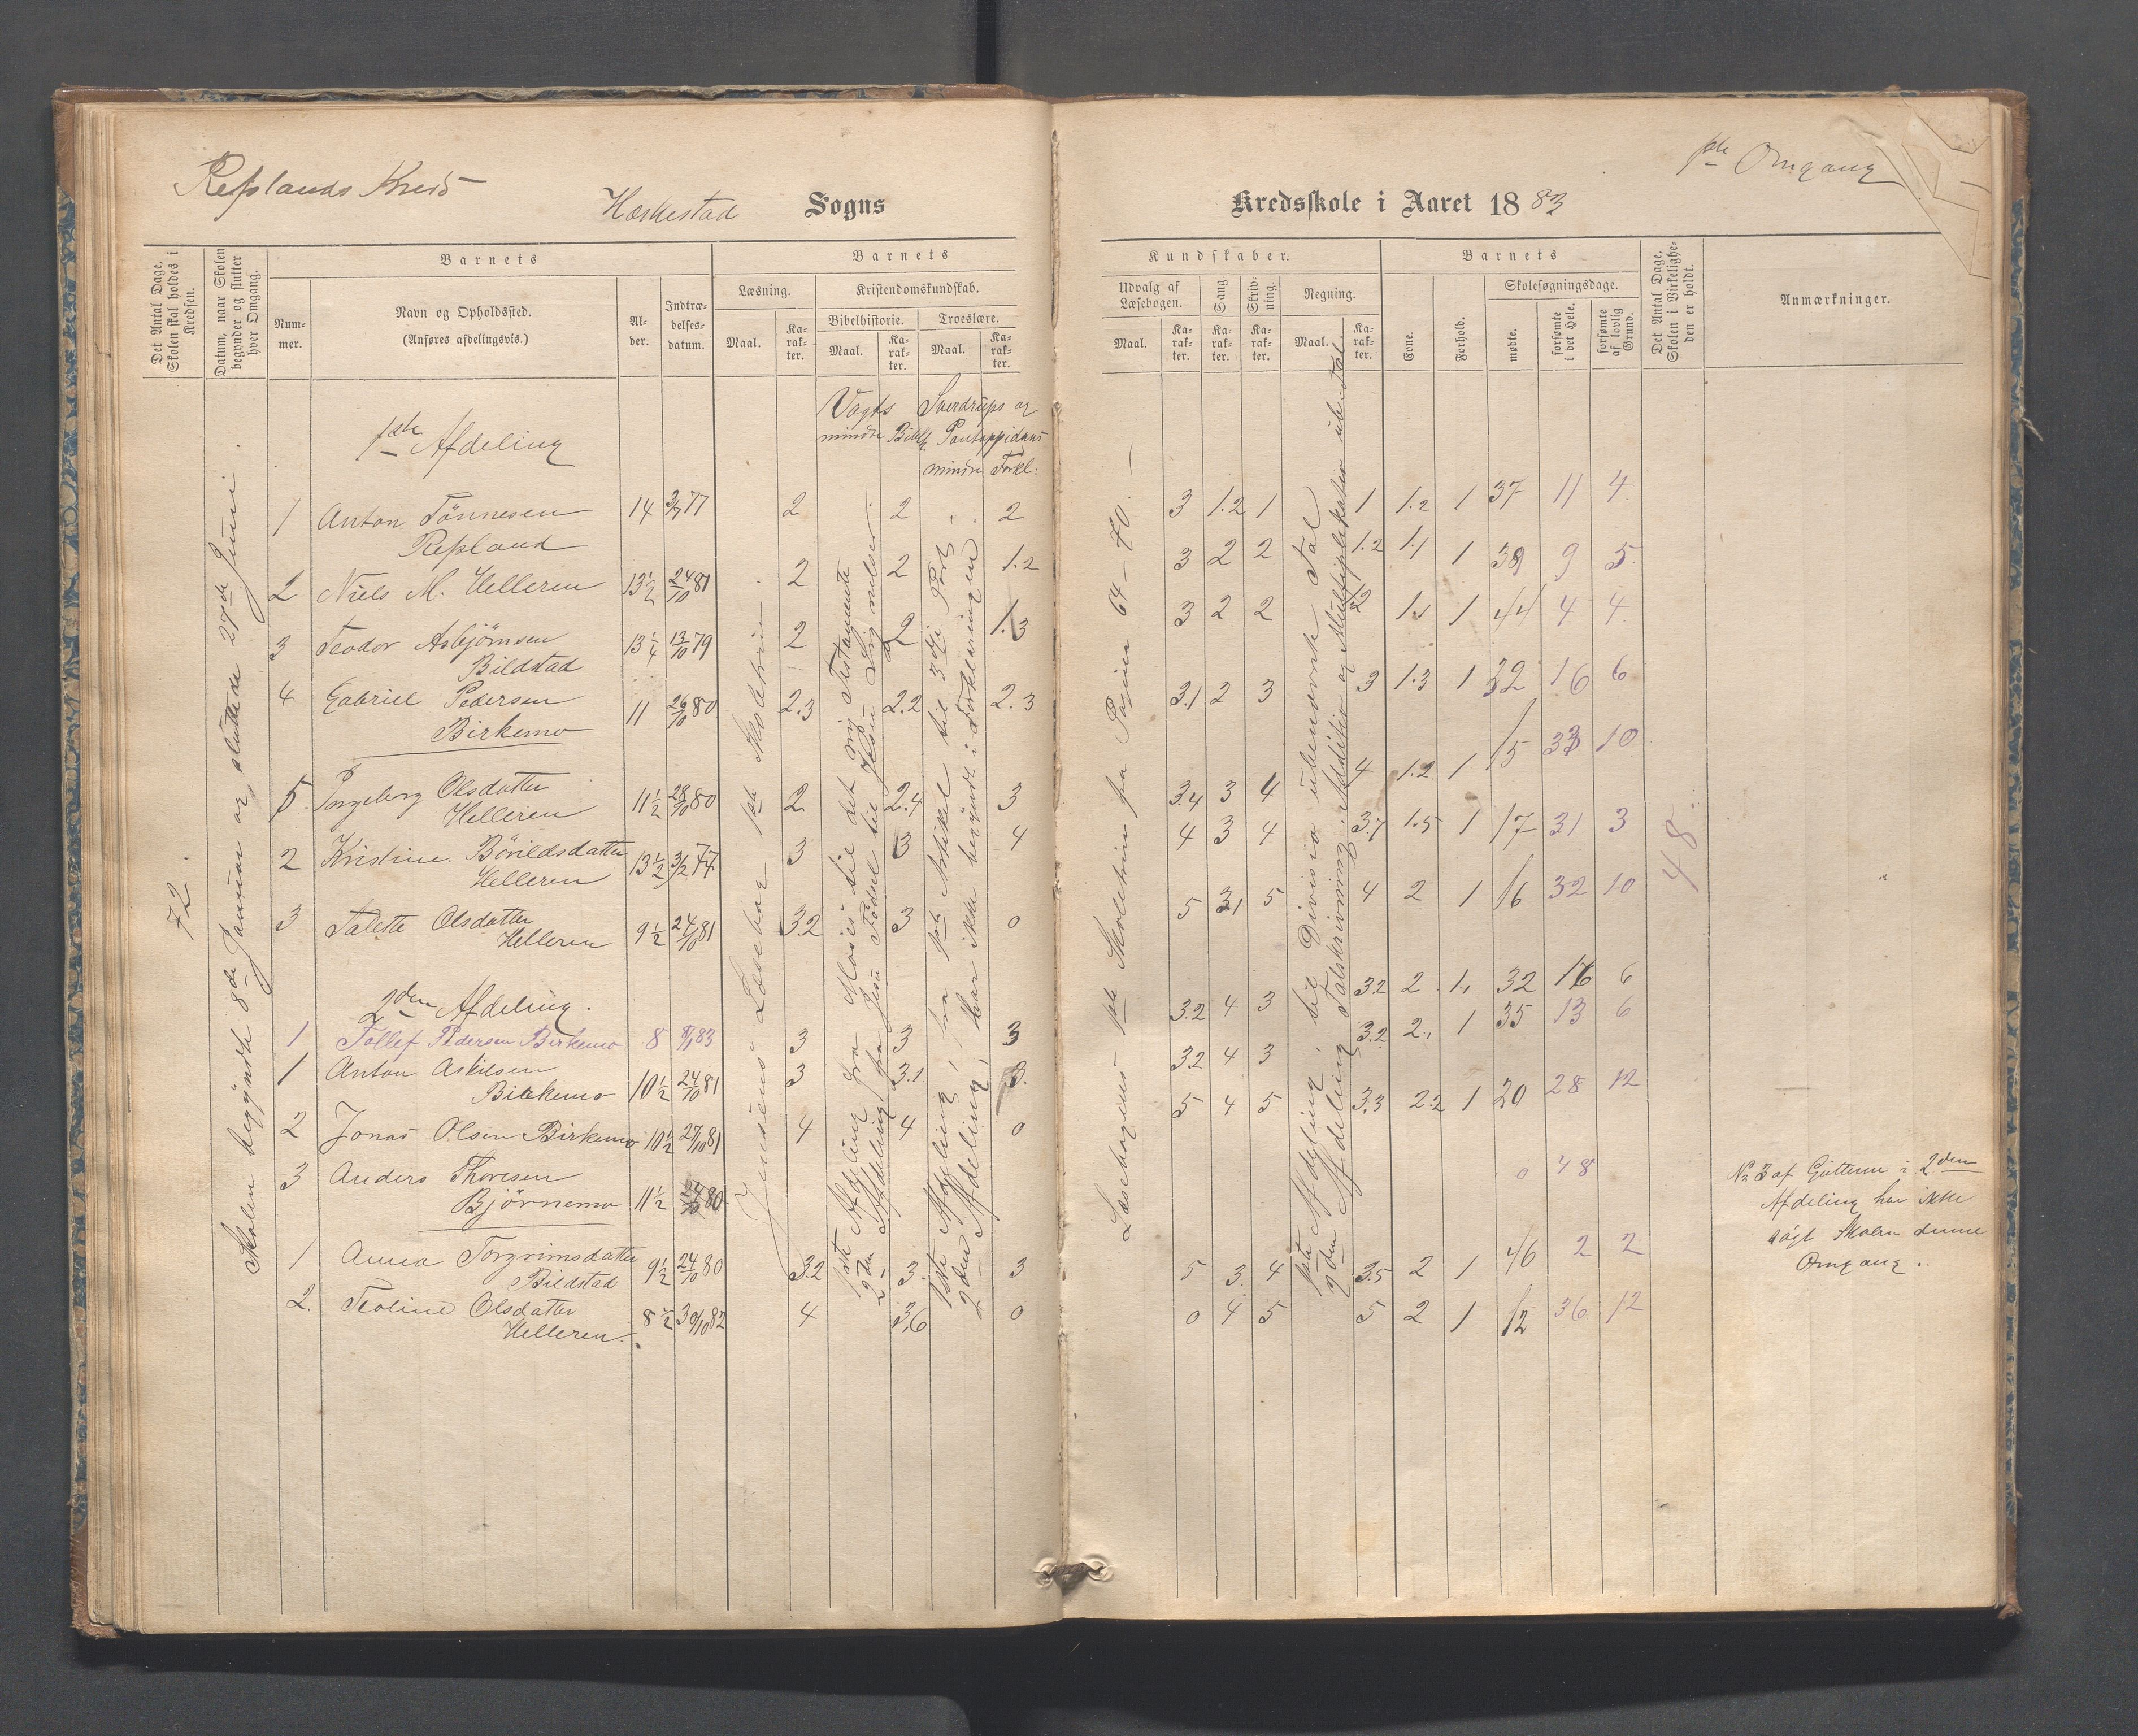 Refslands Kreds
Heskestad Sogns
1ste Omgang
Kredsskole i Aaret 1883
Det Antal Dage, Skolen skal holdes i Kredsen.
Datum, naar Skolen begynder og slutter hver Omgang.
Barnets
Nummer.
Navn og Opholdssted.
(Anføres afdelingsvis.)
Alder.
Indtrædelsesdatum.
Barnets
Læsning.
Maal.
Karakter.
Kristendomskundskab.
Bibelhistorie.
Maal.
Karakter.
Troeslære.
Maal.
Karakter.
Kundskaber.
Udvalg af Læsebogen.
Maal.
Karakter.
Sang
Karakter.
Skrivning.
Karakter.
Regning.
Maal.
Karakter.
Barnets
Evne.
Forhold.
Skolesøgningsdage.
mødte.
forsømte i det Hele.
forsømte af lovlig Grund.
Det Antal Dage, Skolen i Virkeligheden er holdt.
Anmærkninger.
72.
Skolen begyndte 8de Januar og sluttede 27de Juni.
Vogts mindre Bibelh.
Sverdrups og Pontoppidans mindre Forkl:
1ste Afdeling
1 Anton Tönnesen Refsland 14 3/7 77 2 2 2 3 1.2 1 1 1.2 1 37 11 4
2 Niels M. Helleren 13 1/2 24/10 81 2 2 1.2 3 2 2 1.2 1.1 1 39 9 5
3 Teodor Asbjörnsen Bildstad 13 1/4 13/10 79 2 2 1.3 3 2 2 2 1.1 1 44 4 4
4 Gabriel Pedersen Birkemo 11 26/10 80 2.3 2.2 2.3 3.1 2 3 3 1.3 1 32 16 6
5. Ingeborg Olsdatter Helleren 11 1/2 28/10 80 2 2.4 3 3.4 3 4 4 1.2 1 15 33 10
2 Kristine Bårildsdatter Helleren 13 1/2 3/2 77 3 3 4 4 3 4 3.7 1.5 1 17 31 3
3 Talette Olsdatter Helleren 9 1/2 24/10 81 3.2 3 0 5 3.1 5 4 2 1 16 32 10
48
2den Afdeling.
1 Tollef Pedersen Birkemo 8 8/1 83 3 3 3 3.2 4 3 3.2 2 1.1 32 16 6
1 Anton Askilsen Birkemo 10 1/2 24/10 81 3 3.1 3. 3.2 4 3 3.2 2.1 1 35 13 6
2 Jonas Olsen Birkemo 10 1/2 27/10 81 4 4 0 5 4 5 3.3 2.2 1 20 28 12
3 Anders Thoresen Björnemo 11 1/2 80 0 48
1 Anna Torgrimsdatter Bildstad 9 1/2 24/10 80 3.2 3 3 5 3 4 3.5 2 1 46 2 2
2. Teoline Olsdatter Helleren. 8 1/2 30/10 82 4 3.6 0 0 4 5 5 2 1 12 36 12
Jensens Læsebog 1ste Skoletrin.
1ste Afdeling fra Moses til det ny Testamente
2den Afdeling fra Jesu Födsel til Jesu Lignelser.
1ste Afdeling, fra 1ste Artikel til 3die Part
2den Afdeling, har ikke begyndt i Forklaringen
Læsebogens 1ste Skoletrin fra Pagina 64 – 70. —
1ste Afdeling, til Divisio ubenævnte Tal
2den Afdeling Talskrivning, Addition og Multiplikation ube. Tal.
No 3 af Gutterne i 2den
Afdeling har ikke
sögt Skolen denne
Omgang.